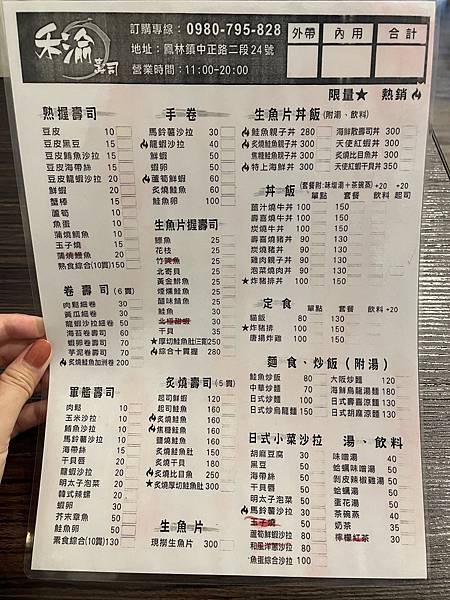 禾渝
壽司
訂購專線：0980-795-828
地址：鳳林鎮中正路二段24號
營業時間：11:00-20:00
外帶 內用 合計
限量★ 熱銷
熟握壽司
豆皮 10
豆皮黑豆 15
豆皮鮪魚沙拉 15
豆皮海帶絲 15
豆皮龍蝦沙拉 20
鮮蝦 20
蟹棒 15
蘆筍 10
魚蛋 10
蒲燒鯛魚 20
玉子燒 15
蒲燒鰻魚 20
熟食綜合(10貫)150
卷壽司(6貫)
肉鬆細卷 30
黃瓜細卷 30
龍蝦沙拉細卷 50
海苔卷壽司 60
蝦卵卷壽司 70
芋泥卷壽司 70
炙燒鮭魚加洲卷 200
軍艦壽司
肉鬆 10
玉米沙拉 10
鮪魚沙拉 10
馬鈴薯沙拉 10
海帶絲 15
干貝唇 20
龍蝦沙拉 20
明太子泡菜 20
韓式辣螺 20
蝦卵 20
芥末章魚 50
鮭魚卵 50
素食綜合(10貫)130
手卷
馬鈴薯沙拉 30
龍蝦沙拉 40
鮮蝦 50
蝦卵 50
蘆筍鮮蝦 60
炙燒鮭魚 60
鮭魚卵 100
生魚片握壽司
鯛魚 25
花枝 25
竹筴魚 25
北寄貝 25
黃金鯡魚 25
煙燻鮭魚 25
醋味鯖魚 25
鮭魚 30
北極甜蝦 30
干貝 35
★厚切鮭魚肚(三貫)250
綜合十貫握 280
炙燒壽司(5貫)
起司鮮蝦 120
起司鮭魚 160
炙燒鮭魚 150
焦糖鮭魚 150
鹽燒鮭魚 150
炙燒鮭魚肚 150
炙燒干貝 180
炙燒比目魚 250
★炙燒厚切鮭魚肚 400
生魚片
現撈生魚片 300
生魚片丼飯(附湯、飲料)
鮭魚親子丼 280 海鮮散壽司丼 300
炙燒鮭魚親子丼 300 天使紅蝦丼 300
焦糖鮭魚親子丼 300 炙燒比目魚丼 300
特上海鮮丼 300 天使紅蝦干貝丼 350
丼飯 (套餐附:味增湯＋茶碗蒸)
單點 套餐 飲料 起司
+20 +20
薑汁燒牛丼 100 150
壽喜燒牛丼 100 150
炊燒牛丼 100 150
壽喜燒豬丼 90 150
炊燒豬丼 90 150
雞肉親子丼 90 150
泡菜燒肉丼 90 150
★炸豬排丼 100 150
定食
單點 套餐 飲料+20
貓飯 80 130
★炸豬排 100 150
唐揚炸雞 100 150
麵食、炒飯(附湯)
鮭魚炒飯 80 大阪炒麵 120
中華炒麵 70 海鮮烏龍湯麵 180
日式炒麵 80 日式壽喜涼麵 130
日式炒烏龍麵 150 日式胡麻涼麵 130
日式小菜沙拉
胡麻豆腐 30
黑豆 50
海帶絲 50
干貝唇 50
明太子泡菜 50
馬鈴薯沙拉 50
玉子燒 50
蘆筍鮮蝦沙拉 80
和風洋蔥沙拉 80
魚蛋綜合沙拉 100
湯、飲料
味噌湯 40
蛤蠣味噌湯 50
剝皮辣椒雞湯 50
蛤蠣湯 50
蛋花湯 50
茶碗蒸 40
奶茶 35
檸檬紅茶 30